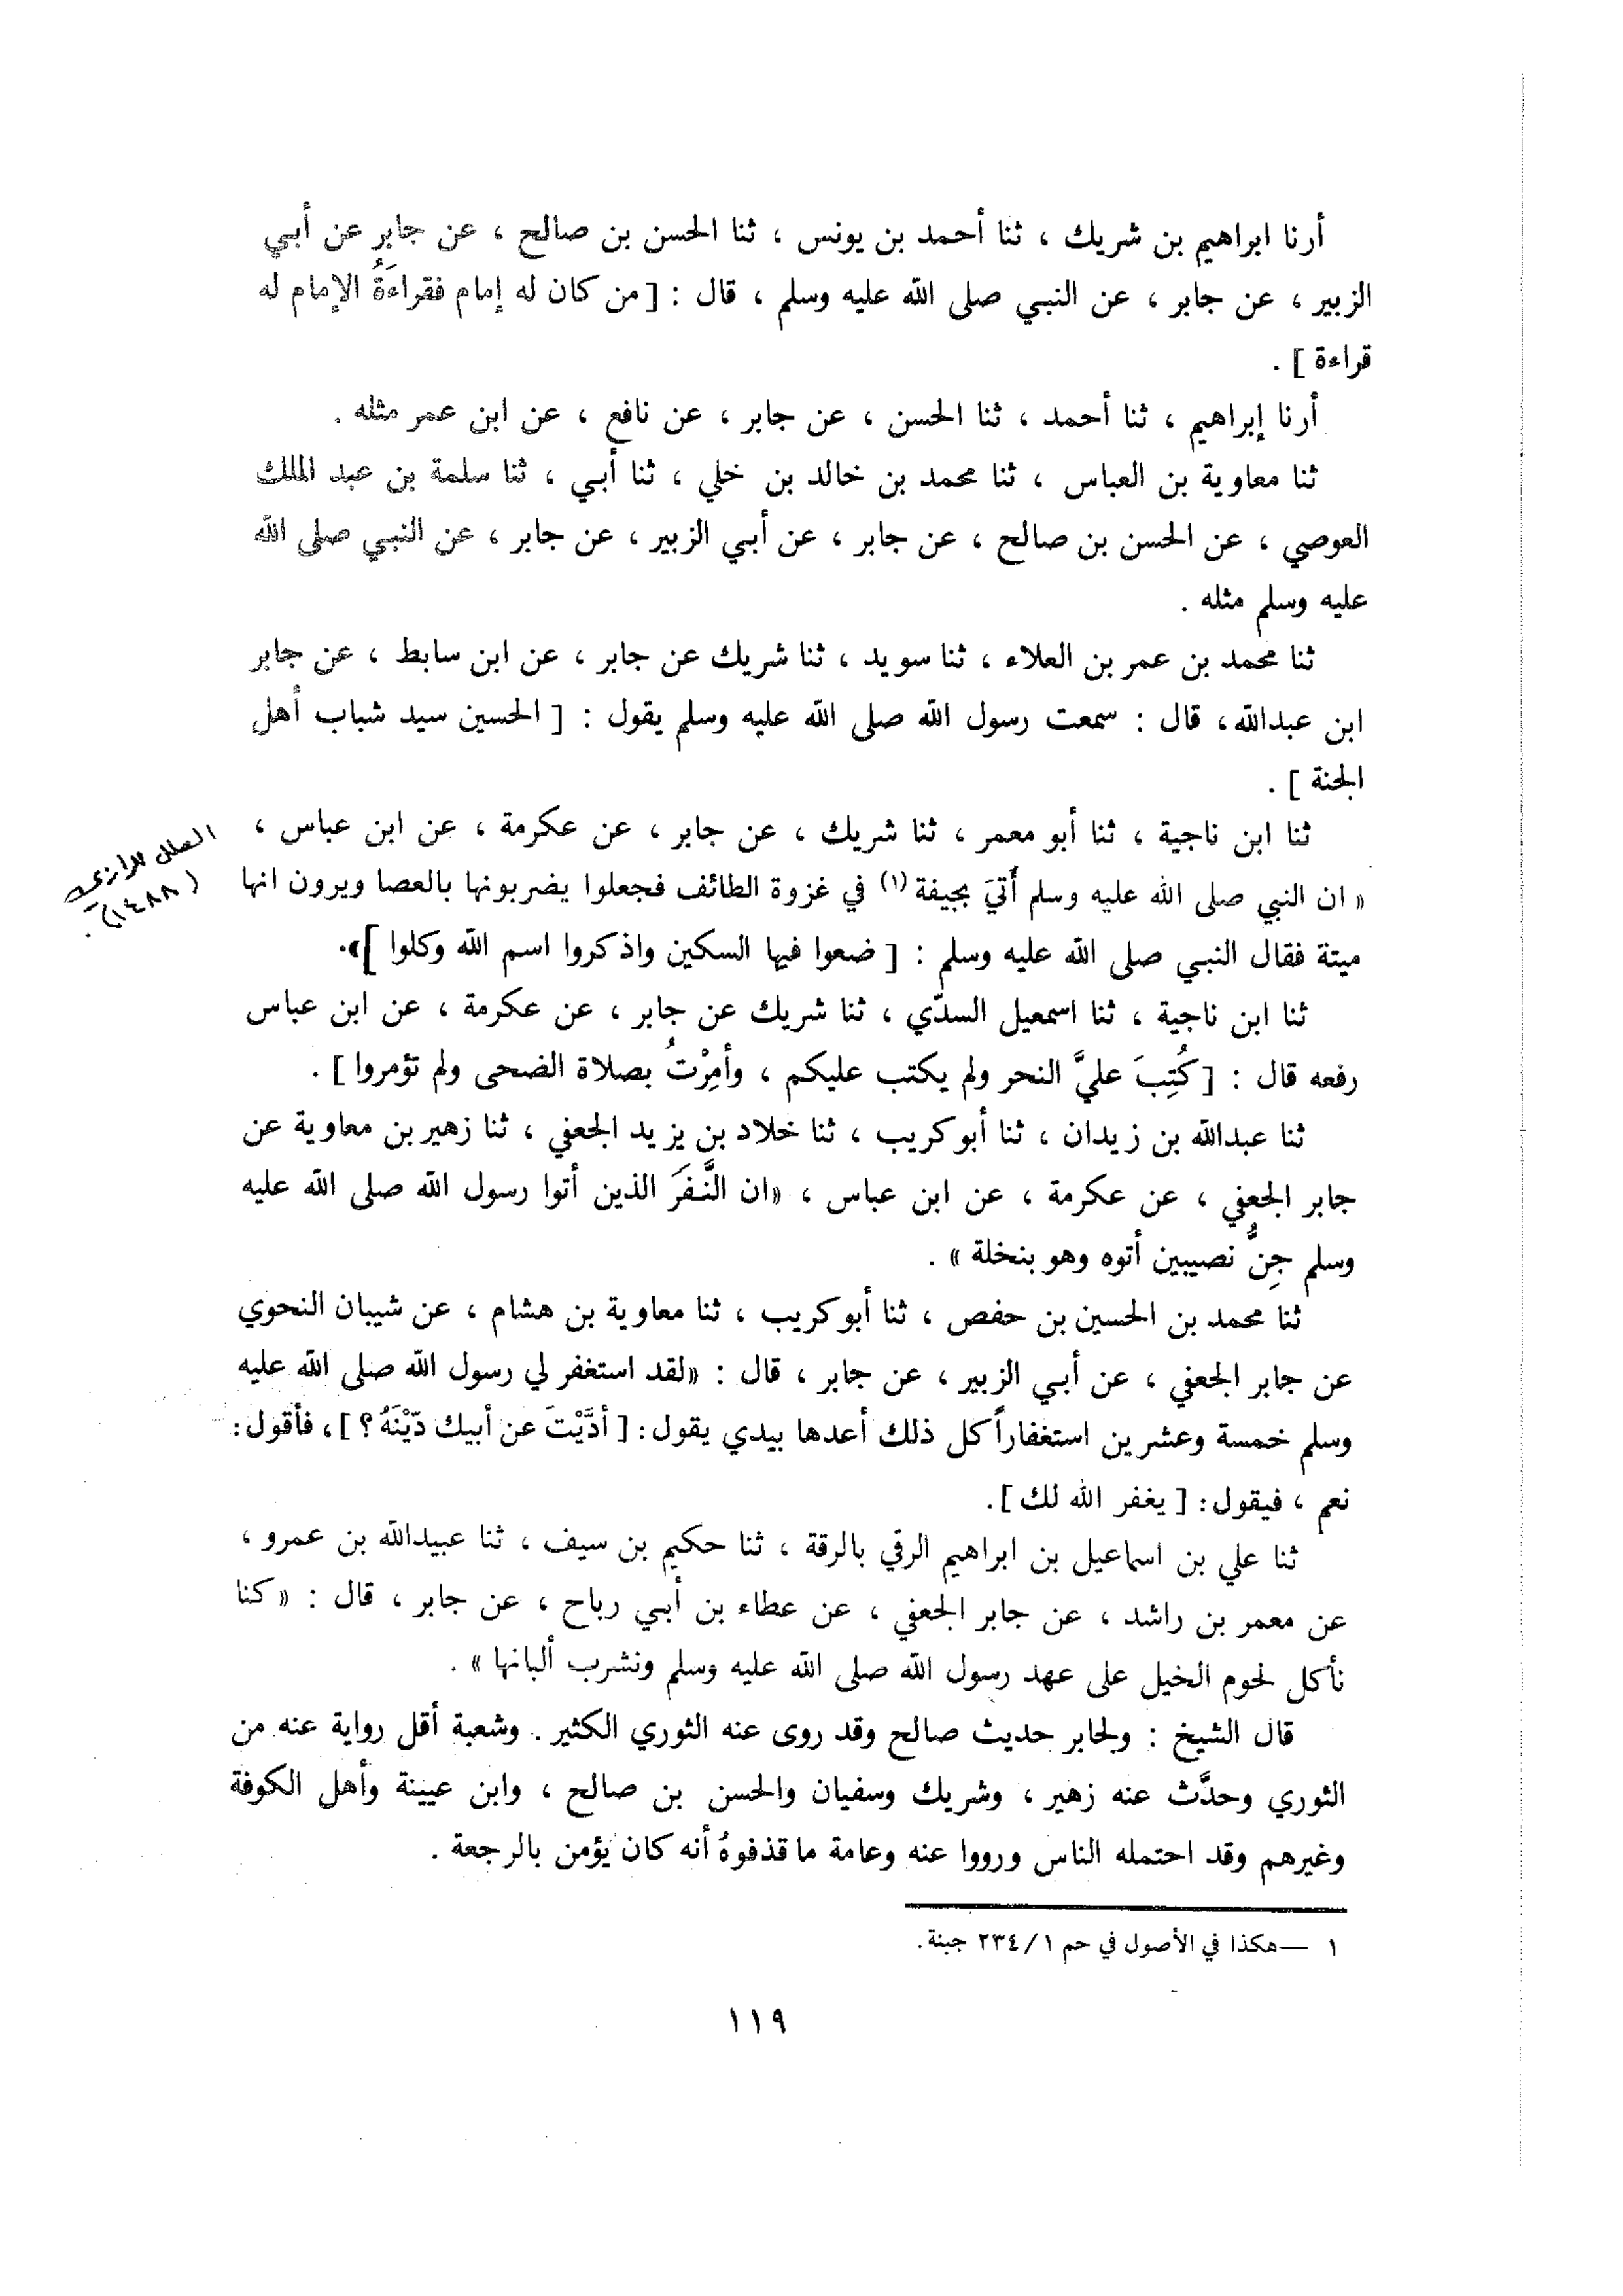 أرنا ابراهيم بن شريك ، ثنا أحمد بن يونس ، ثنا الحسن بن صالح ، عن جابر عن أبي
الزبير ، عن جابر ، عن النبي صلى الله عليه وسلم ، قال : [ من كان له إمام فقراءَةُ الإمام له
قراءة ] .
أرنا إبراهيم ، ثنا أحمد ، ثنا الحسن ، عن جابر ، عن نافع ، عن ابن عمر مثله .
ثنا معاوية بن العباس ، ثنا محمد بن خالد بن خلي ، ثنا أبي ، ثنا سلمة بن عبد الملك
العوصي ، عن الحسن بن صالح ، عن جابر ، عن أبي الزبير ، عن جابر ، عن النبي صلى الله
عليه وسلم مثله .
ثنا محمد بن عمر بن العلاء ، ثنا سويد ، ثنا شريك عن جابر ، عن ابن سابط ، عن جابر
ابن عبدالله ، قال : سمعت رسول الله صلى الله عليه وسلم يقول : [ الحسين سيد شباب أهل
الجنة ] .
ثنا ابن ناجية ، ثنا أبو معمر ، ثنا شريك ، عن جابر ، عن عكرمة ، عن ابن عباس ،
« ان النبي صلى الله عليه وسلم أَتيَ بجيفة (١) في غزوة الطائف فجعلوا يضربونها بالعصا ويرون انها
ميتة فقال النبي صلى الله عليه وسلم : [ ضعوا فيها السكين واذكروا اسم الله وكلوا ]».
العلل للرازي
(١٤٨٨) .
ثنا ابن ناجية ، ثنا اسمعيل السدّي ، ثنا شريك عن جابر ، عن عكرمة ، عن ابن عباس
رفعه قال : [ كُتِبَ عليَّ النحر ولم يكتب عليكم ، وأمِرْتُ بصلاة الضحى ولم تؤمروا ] .
ثنا عبدالله بن زيدان ، ثنا أبو كريب ، ثنا خلاد بن يزيد الجعفي ، ثنا زهير بن معاوية عن
جابر الجعفي ، عن عكرمة ، عن ابن عباس ، «ان النَّفَرَ الذين أتوا رسول الله صلى الله عليه
وسلم جِنُّ نصيبين أتوه وهو بنخلة » .
ثنا محمد بن الحسين بن حفص ، ثنا أبو كريب ، ثنا معاوية بن هشام ، عن شيبان النحوي
عن جابر الجعفي ، عن أبي الزبير ، عن جابر ، قال : «لقد استغفر لي رسول الله صلى الله عليه
وسلم خمسة وعشرين استغفاراً كل ذلك أعدها بيدي يقول : [ أدَّيْتَ عن أبيك دّيْنَهُ ؟ ] ، فأقول :
نعم ، فيقول : [ يغفر الله لك ] .
ثنا علي بن اسماعيل بن ابراهيم الرقي بالرقة ، ثنا حكيم بن سيف ، ثنا عبيدالله بن عمرو ،
عن معمر بن راشد ، عن جابر الجعفي ، عن عطاء بن أبي رباح ، عن جابر ، قال : « كنا
نأكل لحوم الخيل على عهد رسول الله صلى الله عليه وسلم ونشرب ألبانها » .
قال الشيخ : ولجابر حديث صالح وقد روى عنه الثوري الكثير . وشعبة أقل رواية عنه من
الثوري وحدَّث عنه زهير ، وشريك وسفيان والحسن بن صالح ، وابن عيينة وأهل الكوفة
وغيرهم وقد احتمله الناس ورووا عنه وعامة ما قذفوهُ أنه كان يؤمن بالرجعة .
١ — هكذا في الأصول في حم ٢٣٤/١ جبنة .
١١٩